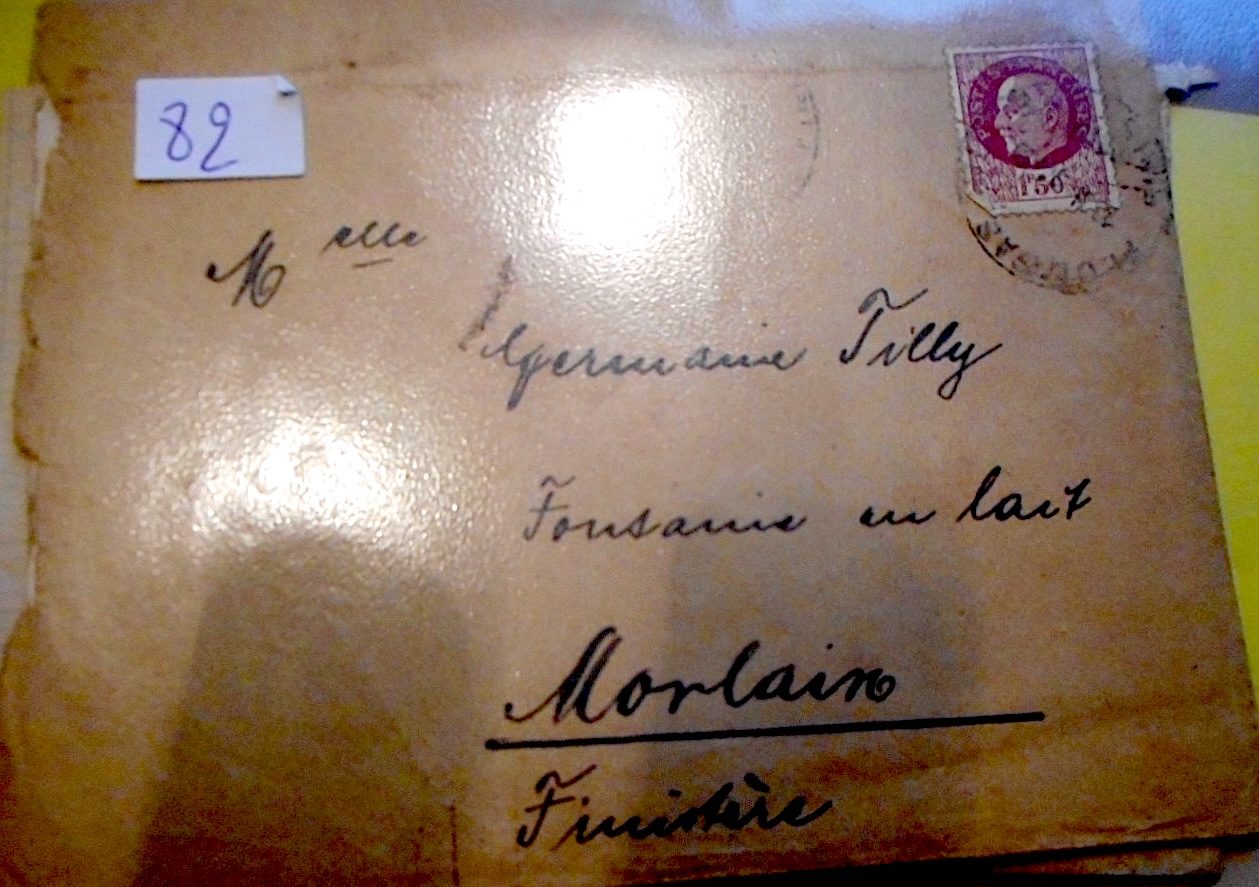 82
POSTES FRANÇAISES
1F50
Melle
Germaine Tilly
Fontaine en lait
Morlaix
Finistère